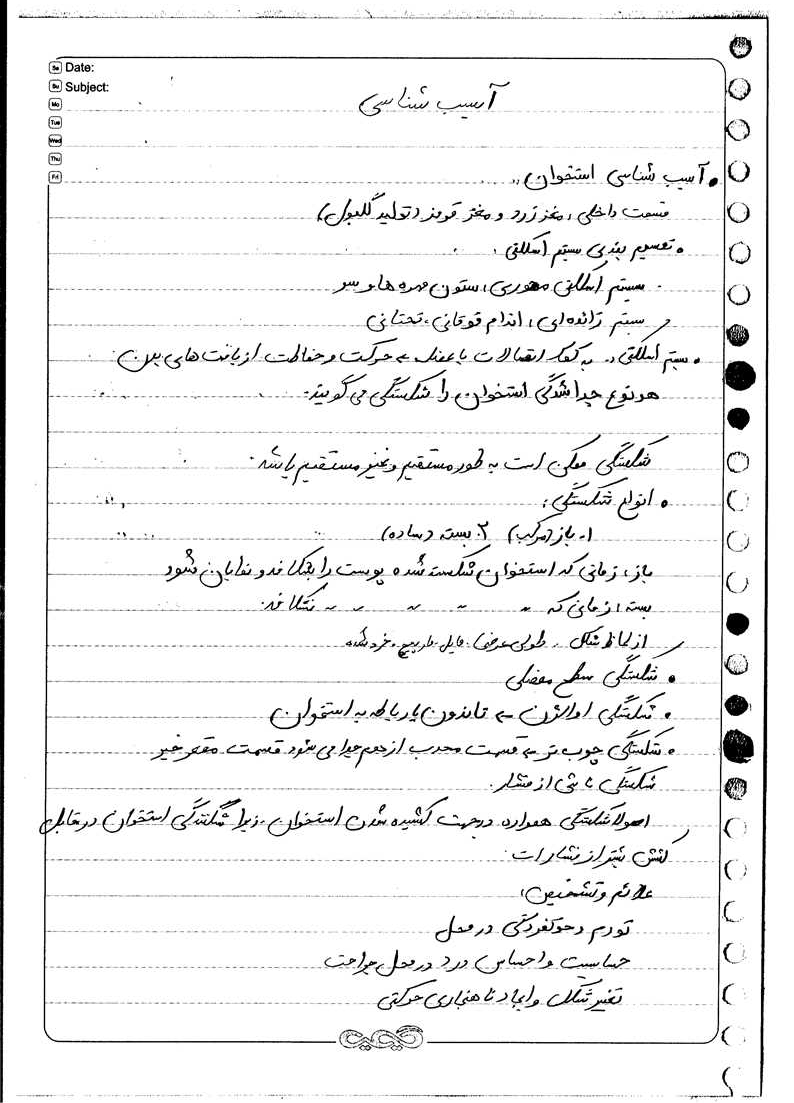 Date:
Subject:
Sa
Su
Mo
Tue
Wed
Thu
Fri
آسیب شناسی
• آسیب شناسی استخوان:
قسمت داخلی: مغز زرد و مغز قرمز (تولید گلبول)
• تقسیم بندی سیستم اسکلتی:
سیستم اسکلتی محوری: ستون مهره ها و سر
سیستم زائده ای: اندام فوقانی، تحتانی
• سیستم اسکلتی: به کمک اتصالات با عضله ← حرکت و حفاظت از بافت های بدن
هر نوع جدا شدگی استخوان را شکستگی می گویند.
شکستگی ممکن است به طور مستقیم و غیر مستقیم باشد.
• انواع شکستگی:
۱. باز (مرکب) ۲. بسته (ساده)
باز: زمانی که استخوان شکسته شده پوست را بشکافد و نمایان شود
بسته: زمانی که " " " " نشکافد.
از لحاظ شکل: طولی، عرضی، مایل، مارپیچ، خرد شده
• شکستگی سطح مفصلی
• شکستگی اوالژن ← تاندون یا رباط به استخوان
• شکستگی چوب تر ← قسمت محدب از هم جدا می شود قسمت مقعر خیر
شکستگی ناشی از فشار.
اصولا شکستگی همواره در جهت کشیده شدن استخوان، زیرا شکنندگی استخوان در مقابل
کشش بیشتر از فشار است.
علائم و تشخیص:
تورم و خونمردگی در محل
حساسیت و احساس درد در محل جراحت
تغییر شکل و ایجاد ناهنجاری حرکتی